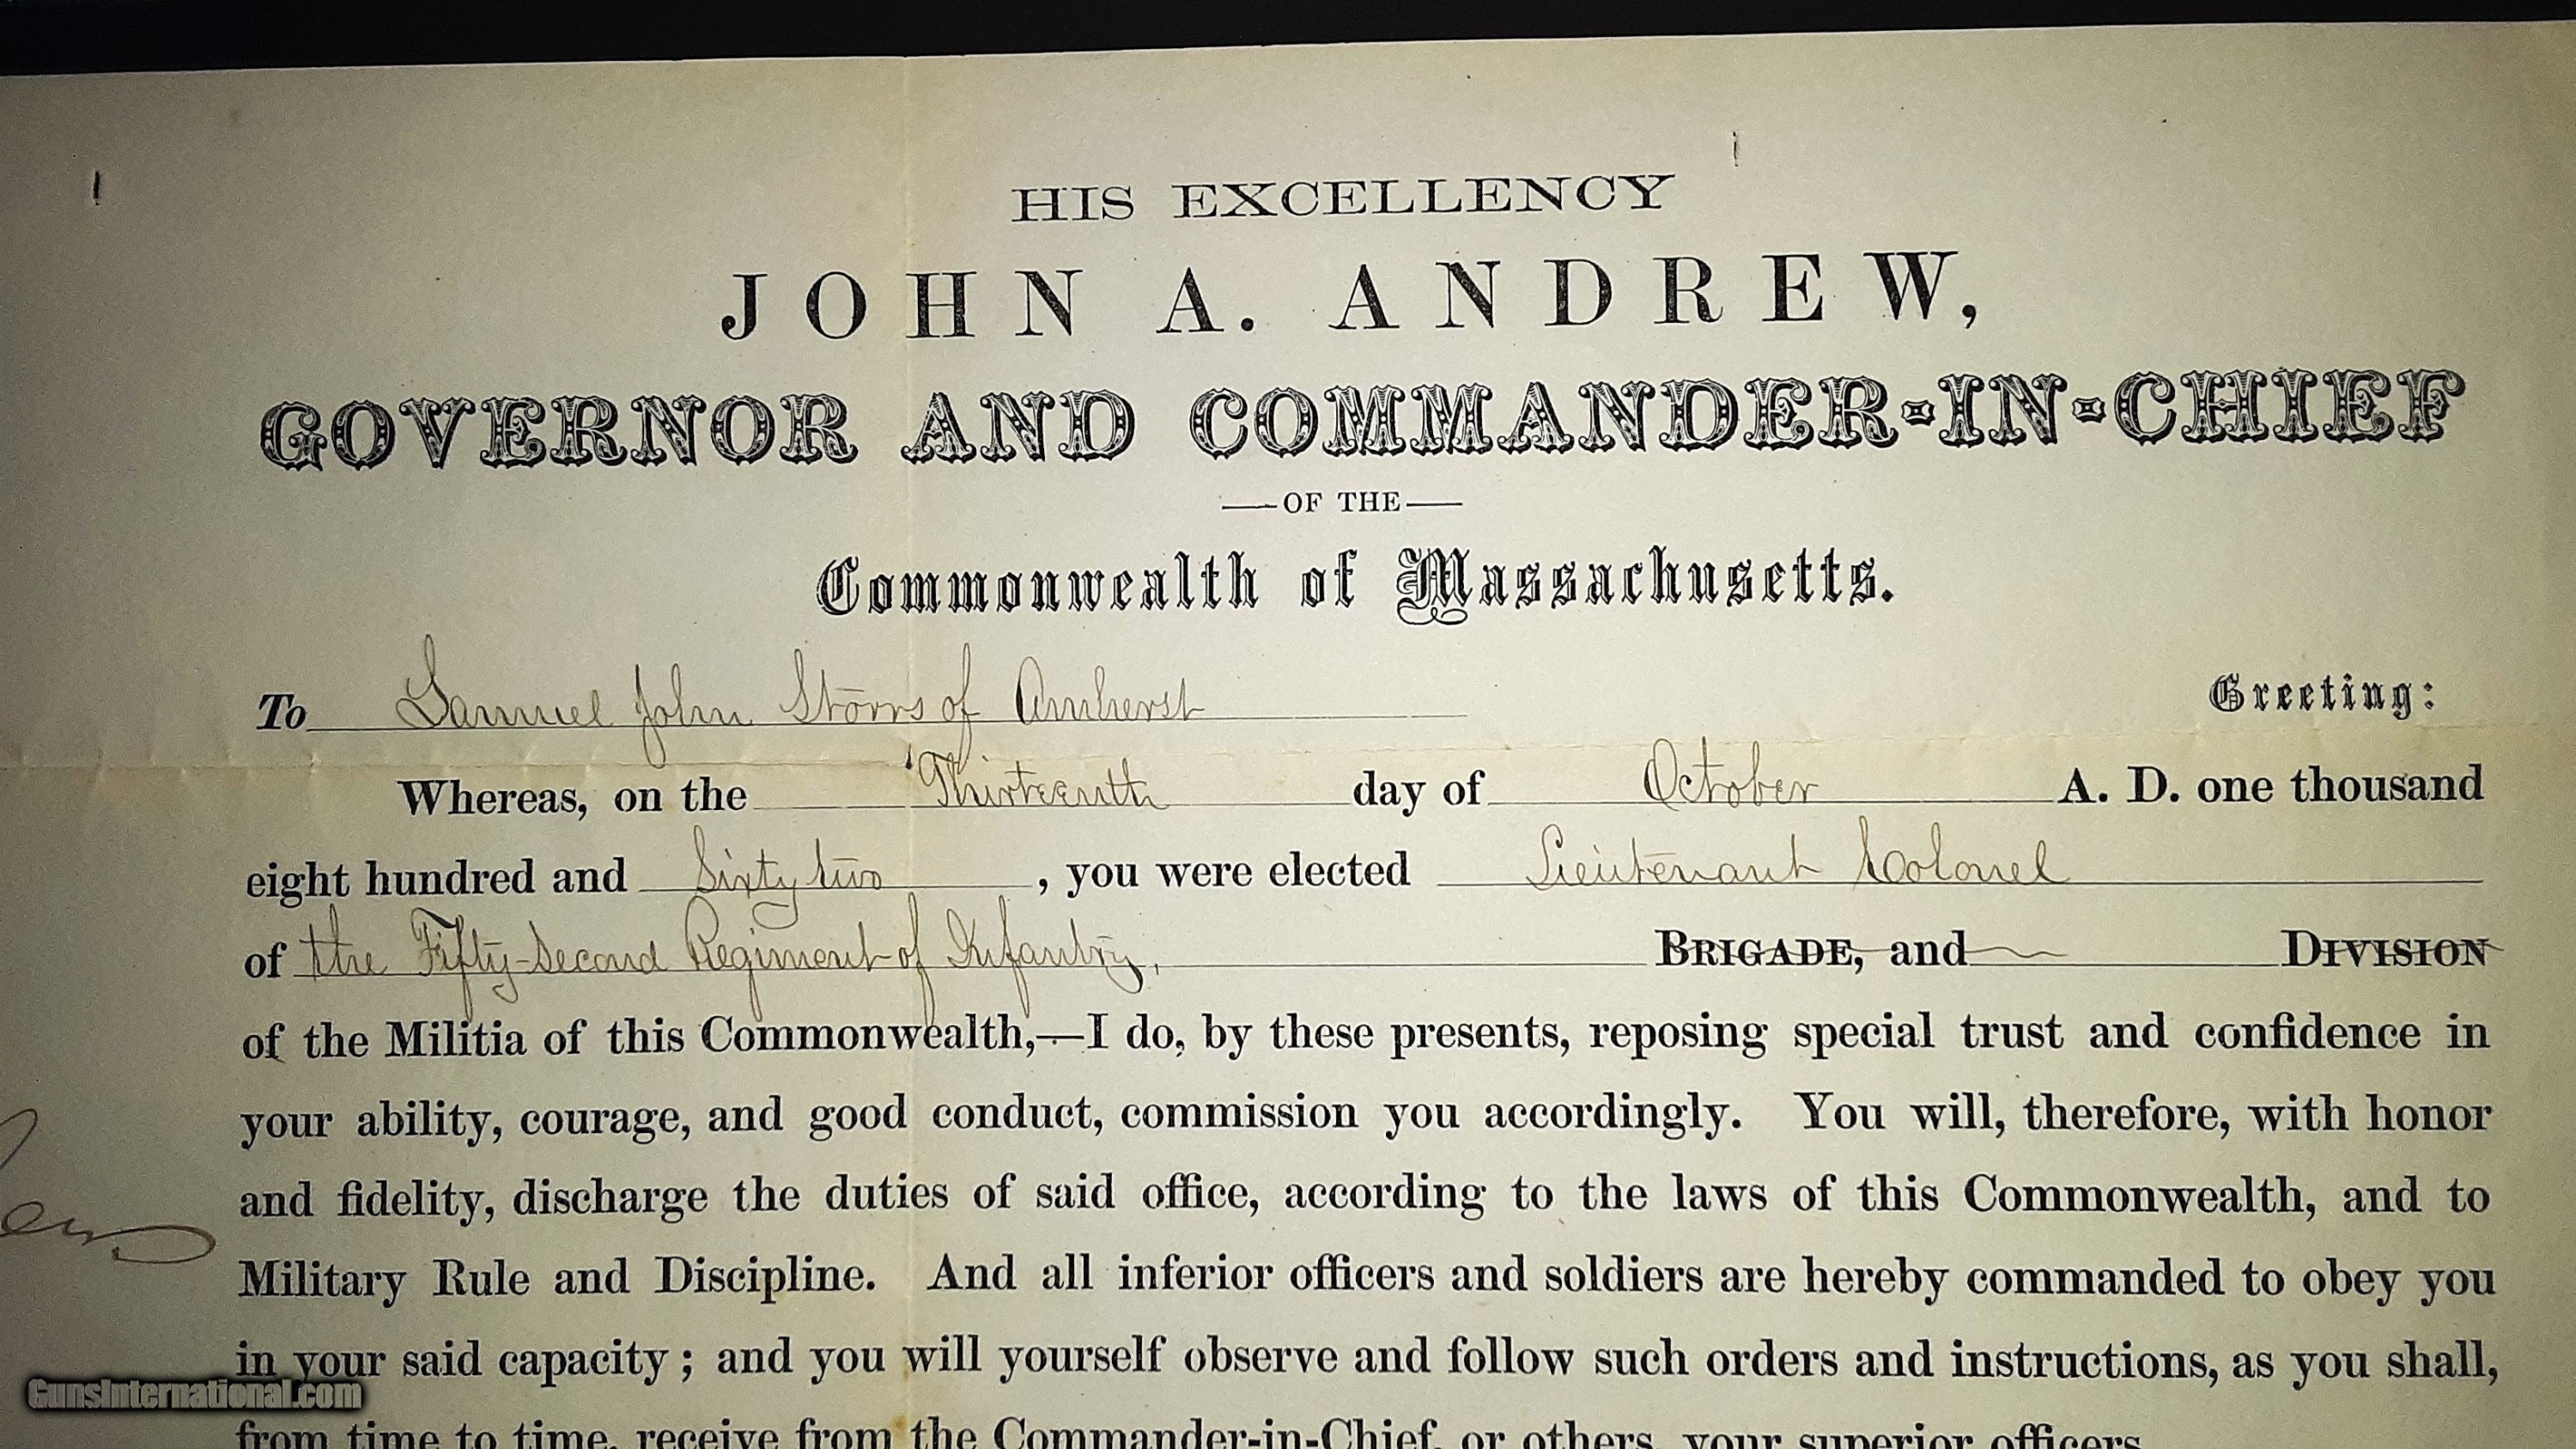 HIS EXCELLENCY
JOHN A. ANDREW,
GOVERNOR AND COMMANDER-IN-CHIEF
—OF THE—
Commonwealth of Massachusetts.
To Samuel John Storrs of Amherst Greeting:
Whereas, on the Thirteenth day of October A. D. one thousand
eight hundred and Sixty two, you were elected Lieutenant Colonel
of the Fifty-Second Regiment of Infantry, BRIGADE, and DIVISION
of the Militia of this Commonwealth,—I do, by these presents, reposing special trust and confidence in
your ability, courage, and good conduct, commission you accordingly. You will, therefore, with honor
and fidelity, discharge the duties of said office, according to the laws of this Commonwealth, and to
Military Rule and Discipline. And all inferior officers and soldiers are hereby commanded to obey you
in your said capacity; and you will yourself observe and follow such orders and instructions, as you shall,
from time to time, receive from the Commander-in-Chief, or others, your superior officers
GunsInternational.com